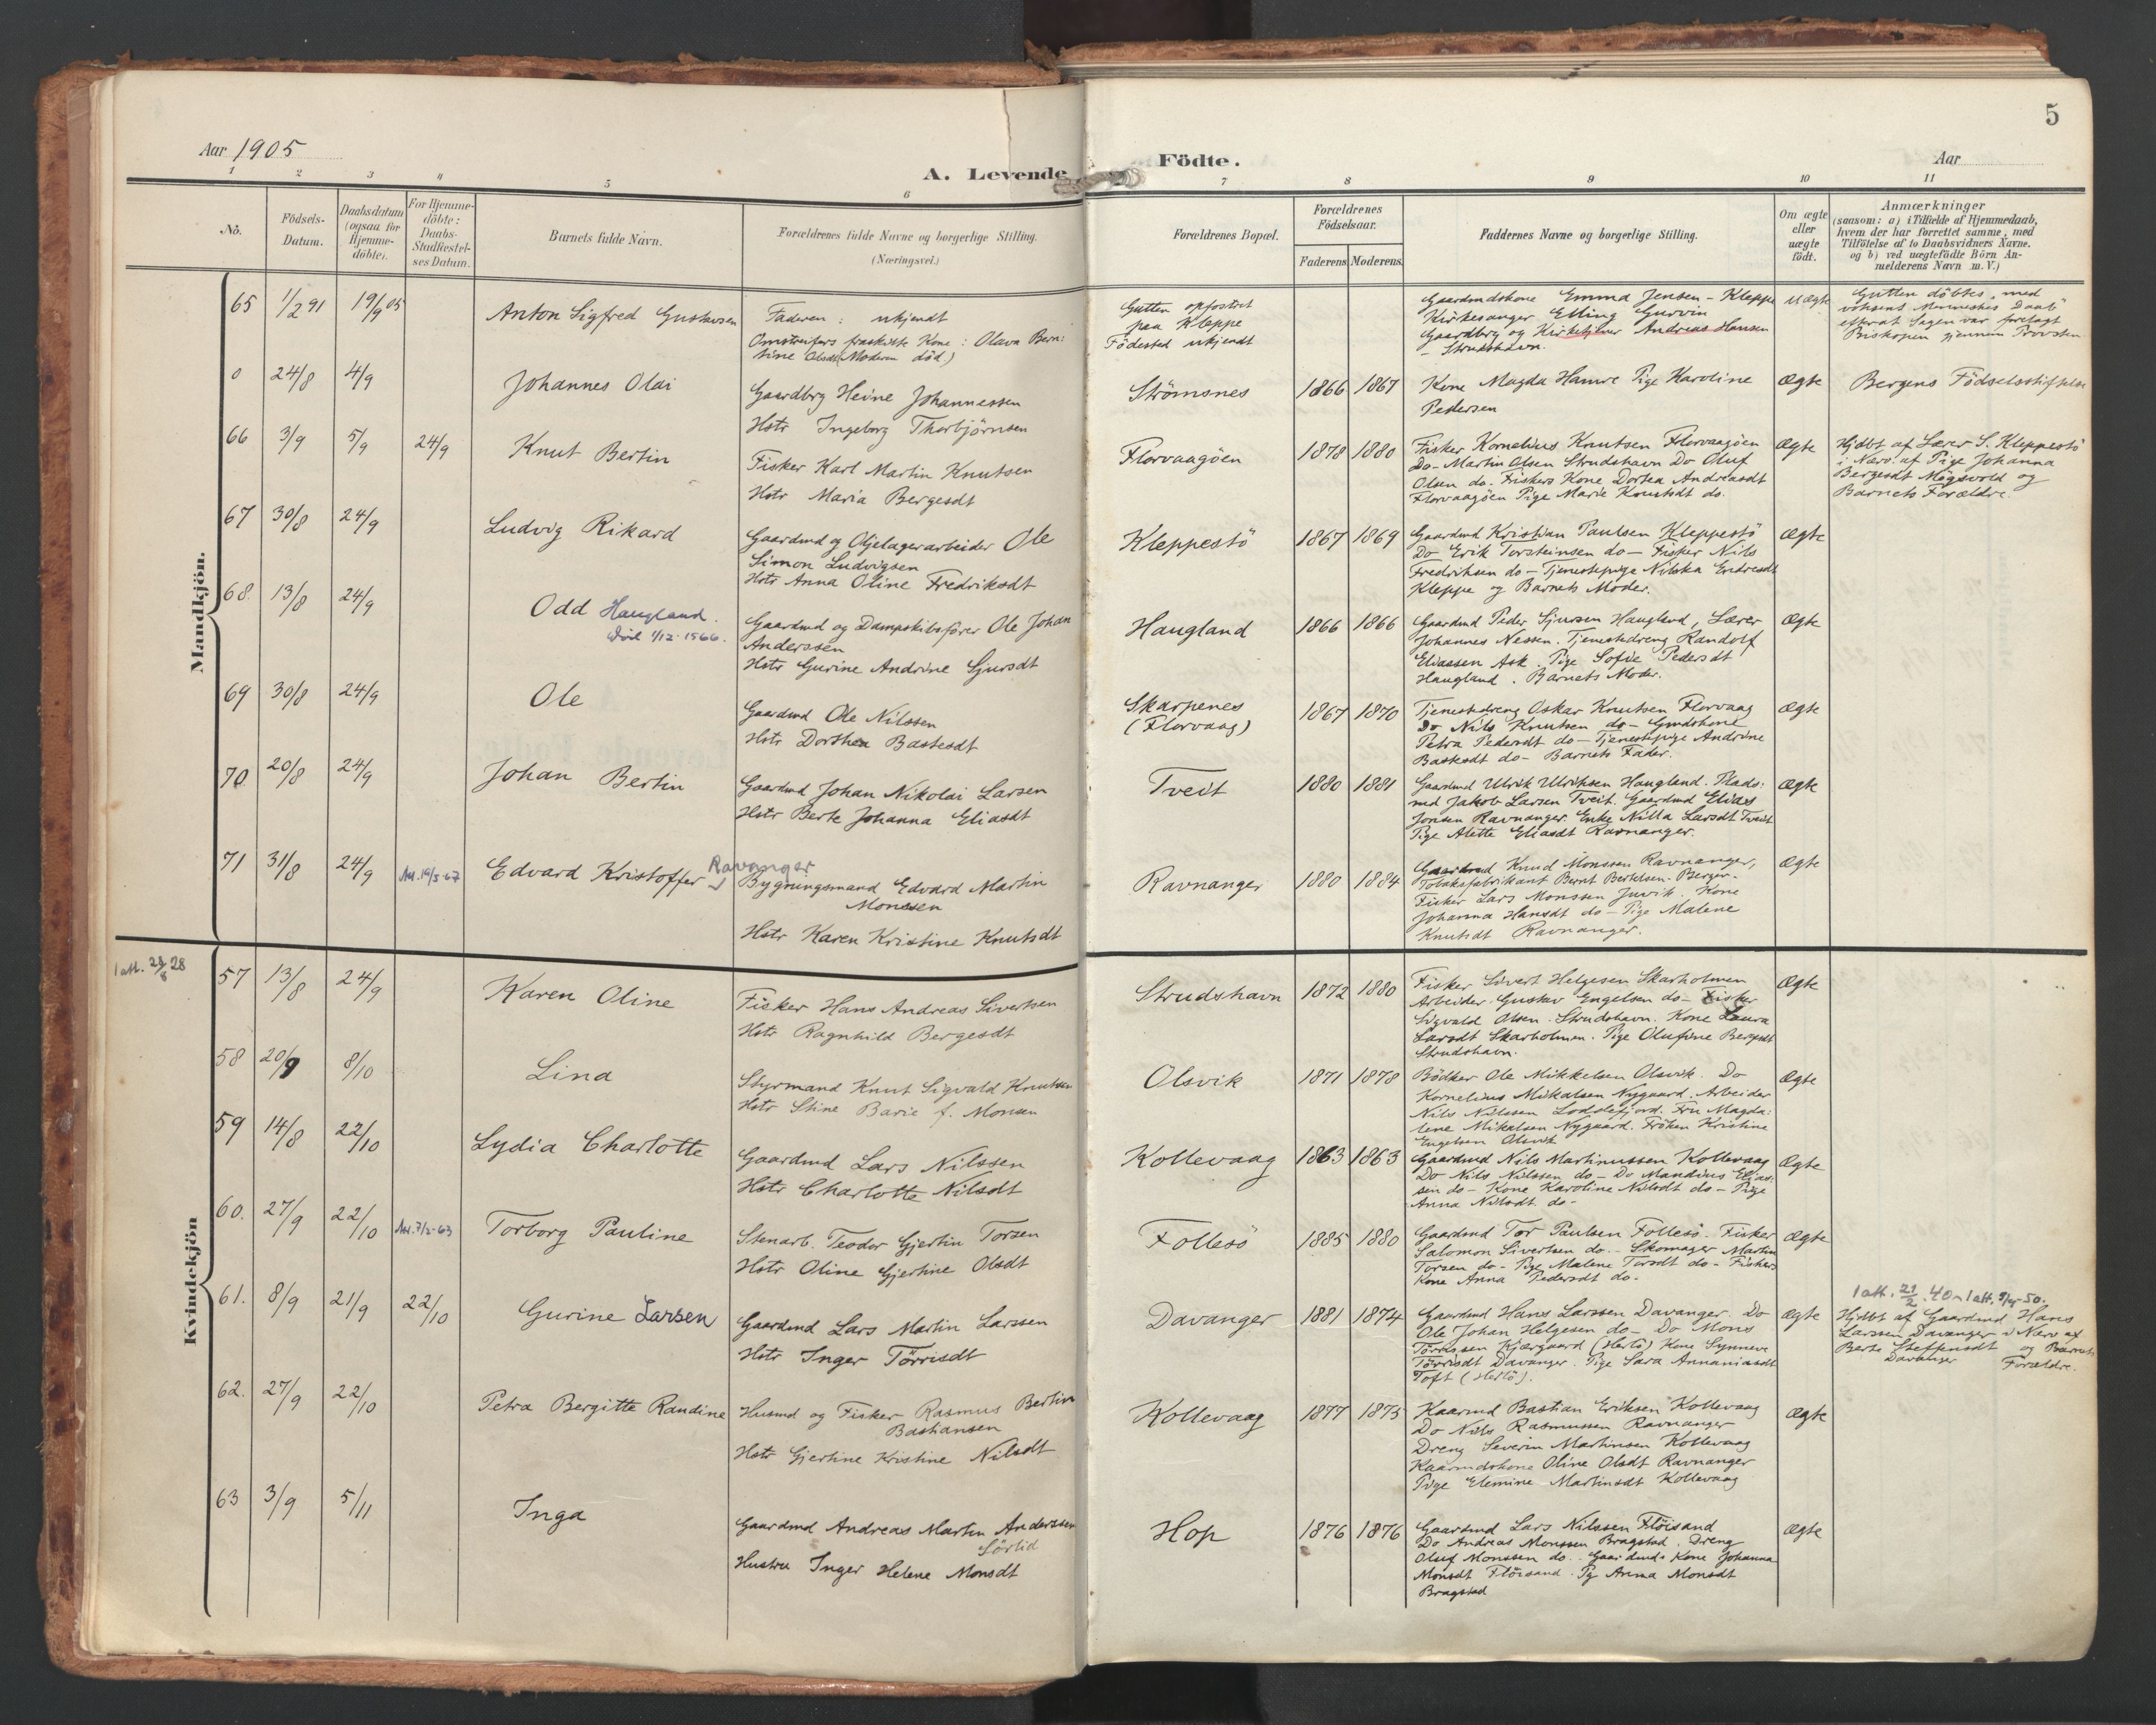 Aar 1905
A. Levende
Födte.
Aar
5
1 2 3 4 5 6 7 8 9 10 11
Nò.
Födsels-Datum.
Daabsdatum (ogsaa for Hjemme-döbte).
For Hjemme-döbte: Daabs-Stadfæstel-ses Datum.
Barnets fulde Navn.
Forældrenes fulde Navne og borgerlige Stilling. (Næringsvei.)
Forældrenes Bopæl.
Forældrenes Födselsaar.
Faderens Moderens
Faddernes Navne og borgerlige Stilling.
Om ægte eller uægte födt.
Anmærkninger
(saasom: a) i Tilfælde af Hjemmedaab, hvem der har forrettet samme, med Tilföielse af to Daabsvidners Navne. og b) ved uægtefödte Börn An-melderens Navn m. V.)
Mandkjön.
65 1/2 91 19/9 05 Anton Sigfred Gustavsen
Faderen: ukjendt
Omstreifers fraskilte Kone: Olava Bern:
tine Olsdt (Moderen död.)
Gutten opfostret
paa Kleppe
Födested ukjendt
Gaardmdskone Emma Jensen - Kleppe
Kirkesanger Elling Gurvin
Gaardbrg og Kirketjener Andreas Hansen
- Strudshavn.
uægte
Gutten döbtes, med
voksent Menneskes Daab
efterat Sagen var forelagt
Biskopen gjennem Provsten
0 24/8 4/9 Johannes Olai
Gaardbrg Heine Johannessen
Hstr Ingeborg Thorbjörnsen
Strömsnes 1866 1867
Kone Magda Hamre Pige Karoline
Pedersen
Ægte
Bergens Födselsstiftelse
66 3/9 5/9 24/9 Knut Bertin
Fisker Karl Martin Knutsen
Hstr Maria Bergesdt
Florvaagöen 1878 1880
Fisker Kornelius Knutsen Florvaagöen
Do- Martin Olsen Strudshavn Do Oluf
Olsen do. Fiskers Kone Dortea Andreasdt
Florvaagöen Pige Marie Knutsdt do.
Ægte
Hjdbt af Lærer S. Kleppestö
i Nærv. af Pige Johanna
Bergesdt Mögsvold og
Barnets Forældre.
67 30/8 24/9 Ludvig Rikard
Gaardmd og Oljelagerarbeider Ole
Simon Ludvigsen
Hstr Anna Oline Fredriksdt
Kleppestö 1867 1869
Gaardmd Kristian Paulsen Kleppestö
Do Erik Torsteinsen do - Fisker Nils
Fredriksen do - Tjenestepige Nilska Endresdt
Kleppe og Barnets Moder.
Ægte
68. 13/8 24/9 Odd Haugland.
Gaardmd og Dampskibsförer Ole Johan
Anderssen
Hstr Gurine Andrine Sjursdt
Haugland 1866 1866
Gaardmd Peder Sjursen Haugland, Lærer
Johannes Nessen. Tjenestedreng Randolf
Eliassen Ask. Pige Sofie Pedersdt
Haugland. Barnets Moder.
Ægte
69 30/8 24/9 Ole
Gaardmd Ole Nilssen
Hstr Dorthea Bastesdt
Skarpenes
(Florvaag)
1867 1870
Tjenestedreng Oskar Knutsen Florvaag
Do Nils Knutsen do - Gmdskone
Petra Pedersdt do - Tjenestepige Andrine
Bastesdt do - Barnets Fader.
Ægte
70 20/8 24/9 Johan Bertin
Gaardmd Johan Nikolai Larsen
Hstr Berte Johanna Eliasdt
Tveit 1880 1881
Gaardmd Ulrik Ulriksen Haugland. Plads:
md Jakob Larsen Tveit. Gaardmd Elias
Jonsen Ravnanger. Enke Nilla Larsdt Tveit
Pige Alette Eliasdt Ravnanger.
Ægte
71 31/8 24/9 Edvard Kristoffer Ravanger
Bygningsmand Edvard Martin
Monssen
Hstr Karen Kristine Knutsdt
Ravnanger 1880 1884
Gaardmd Knud Monssen Ravnanger,
Tobaksfabrikant Bernt Bertelsen - Bergen -
Fisker Lars Monssen Juvik. Kone
Johanna Hansdt do - Pige Malene
Knutsdt Ravnanger.
Ægte
Kvindekjön
1 att. 28/8 28
57 13/8 24/9 Karen Oline
Fisker Hans Andreas Sivertsen
Hstr Ragnhild Bergesdt
Strudshavn 1872 1880
Fisker Sivert Helgesen Skarholmen
Arbeider Gustav Engelsen do - Fisker
Sigvald Olsen. Strudshavn. Kone Laura
Larsdt Skarholmen. Pige Olufine Bergesdt
Strudshavn.
Ægte
58 20/9 8/10 Lina
Styrmand Knut Sigvald Knutsen
Hstr Stine Barie f. Monsen
Olsvik 1871 1878
Bödker Ole Mikkelsen Olsvik. Do
Kornelius Mikalsen Nygaard. Arbeider
Nils Nilssen Loddefjord. Fru Magda:
lene Mikalsen Nygaard. Fröken Kristine
Engelsen Olsvik
Ægte
59 14/8 22/10 Lydia Charlotte
Gaardmd Lars Nilssen
Hstr Charlotte Nilsdt
Kollevaag 1863 1863
Gaardmd Nils Martinussen Kollevaag
Do Nils Nilssen do - Do Mandius Elias-
sen do - Kone Karoline Nilsdt do - Pige
Anna Nilsdt do -
Ægte
60. 27/9 22/10 Torborg Pauline
Stenarb. Teodor Gjertin Torsen
Hstr Oline Gjertine Olsdt
Follesö 1885 1880
Gaardmd Tor Paulsen Follesö. Fisker
Salomon Sivertsen do. - Skomager Martin
Torsen do - Pige Malene Torsdt do - Fiskers
Kone Anna Pedersdt do -
Ægte
61. 8/9 21/9 22/10 Gurine Larsen
Gaardmd Lars Martin Larssen
Hstr Inger Törrisdt
Davanger 1881 1874
Gaardmd Hans Larssen Davanger Do
Ole Johan Helgesen do - Do Mons
Törrissen Kjærgaard (Herlö) Kone Synneve
Törrisdt Davanger. Pige Sara Annaniasdt
Toft (Herlö).
Ægte
Hjdbt af Gaardmd Hans
Larssen Davanger i Nærv af
Berte Steffensdt og Barnets
Davanger Forældre.
62. 27/9 22/10 Petra Bergitte Randine
Husmd og Fisker Rasmus Bertin
Bastiansen
Hstr Gjertine Kristine Nilsdt
Kollevaag 1877 1875
Kaarmd Bastian Eriksen Kollevaag
Do Nils Rasmussen Ravnanger
Dreng Severin Martinsen Kollevaag
Kaarmdskone Oline Olsdt Ravnanger
Pige Elemine Martinsdt Kollevaag
Ægte
63 3/9 5/11 Inga
Gaardmd Andreas Martin Anderssen
Sörlid
Hustru Inger Helene Monsdt
Hop 1876 1876
Gaardmd Lars Nilssen Flöisand
Do Andreas Monssen Bragstad. Dreng
Oluf Monssen do. Gaardmds Kone Johanna
Monsdt Flöisand. Pg Anna Monsdt
Bragstad
Ægte